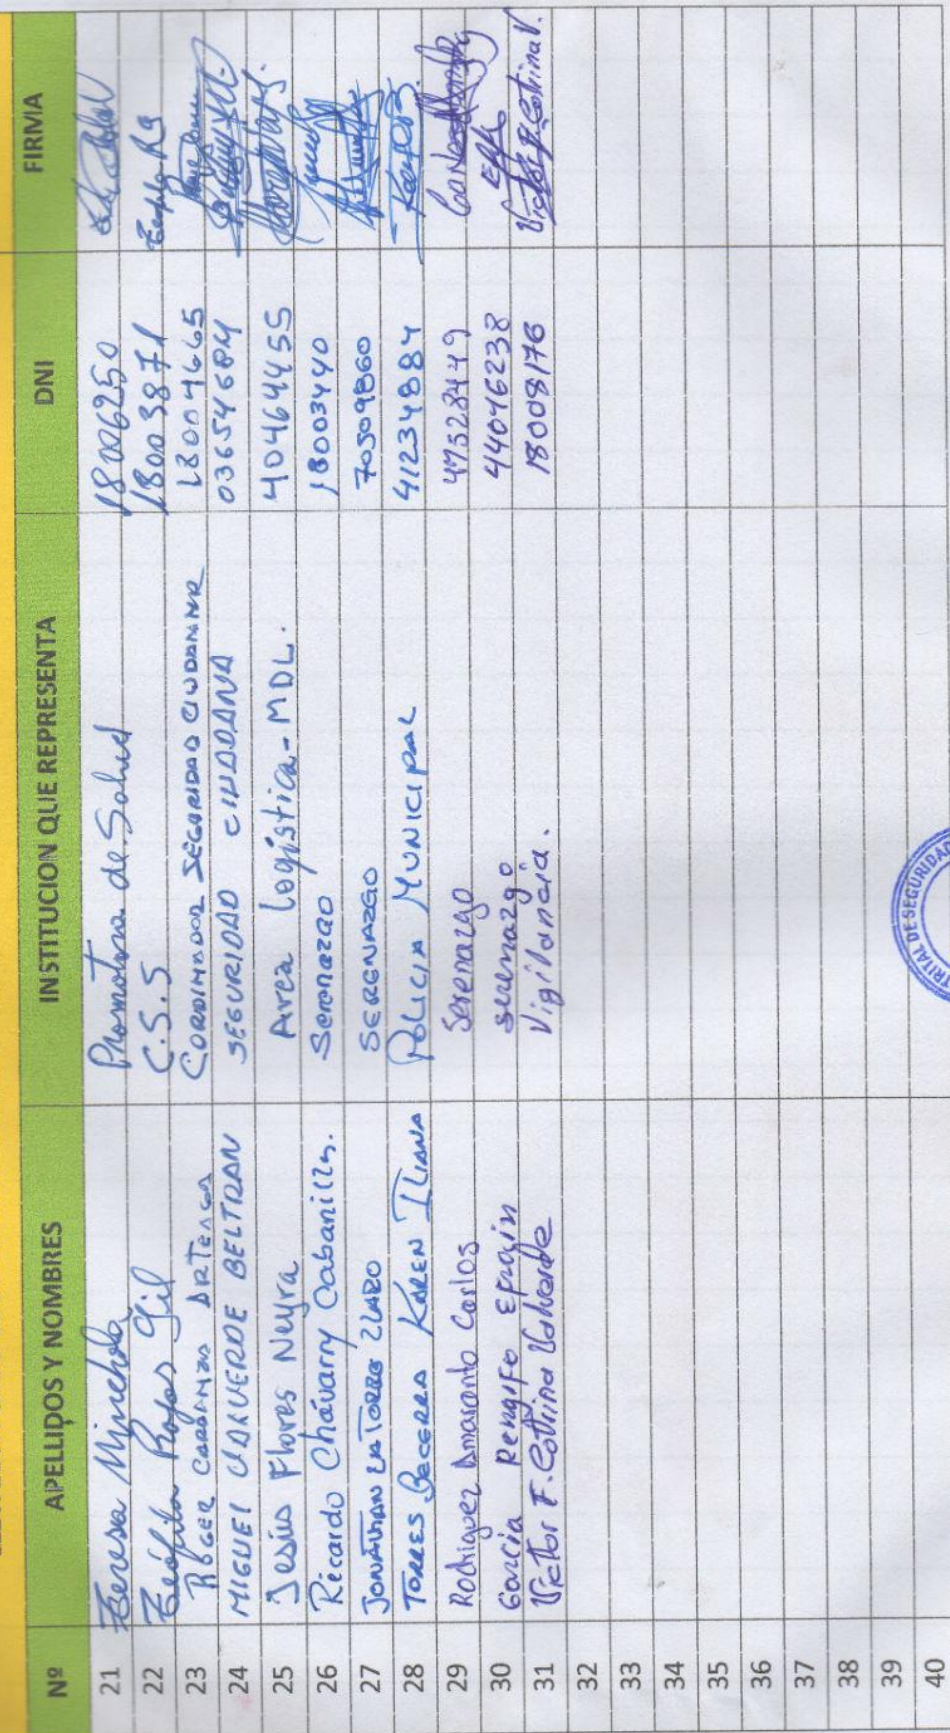 Nº APELLIDOS Y NOMBRES INSTITUCION QUE REPRESENTA DNI FIRMA
21 Teresa Mincholа Promotora de Salud 18006250
22 Teófilo Rojas Gil C.S.S 18003871 Teofilo RG
23 ROGER CARDENAS ARTEAGA CORDINADOR SEGURIDAD CIUDADANA 18004665
24 MIGUEL VALVERDE BELTRAN SEGURIDAD CIUDDANA 03654684
25 Jesús Flores Neyra Area Logística - MDL. 40464455
26 Ricardo Chávarry Cabanills. Serenazgo 18003440
27 JONATHAN LATORRE SERENAZGO 70509860
28 TORRES BECERRA KAREN ILIANA POLICIA MUNICIPAL 41234884
29 Rodriguez Amaranto Carlos Serenazgo 47528449
30 Garcia Rengifo Efrain serenazgo 44046238
31 Victor F. Cotrina Valverde Vigilancia. 18008176 Victor F. Cotrina V.
32
33
34
35
36
37
38
39
40
TRITAL DE SEGURIDAD